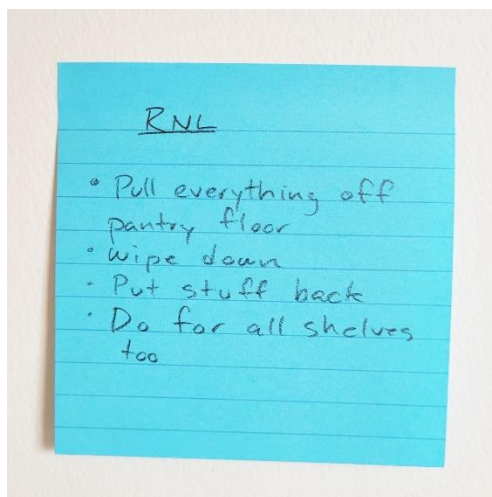 RNL
• Pull everything off
pantry floor
• Wipe down
• Put stuff back
• Do for all shelves
too